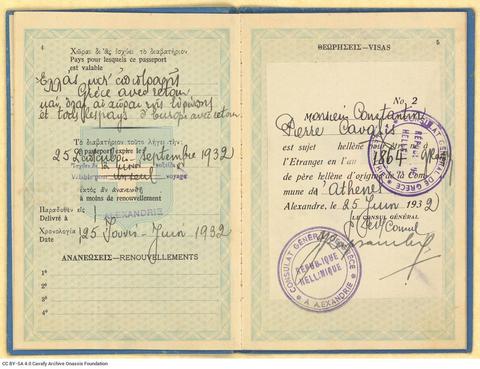 4
Χῶραι δι' ἃς ἰσχύει τὸ διαβατήριον
Pays pour lesquels ce passeport
est valable
Ἑλλὰς μετ' ἐπιστροφῆς
Grèce avec retour
καὶ ὅλαι αἱ χῶραι τῆς Εὐρώπης
et tous les pays d'Europe avec retour
Τὸ διαβατήριον τοῦτο λήγει τὴν
Ce passeport expire le
25 Septembre 1932
Valable pour voyage
ἐκτὸς ἂν ἀνανεωθῇ
à moins de renouvellement
Παραδοθὲν εἰς
Délivré à
ALEXANDRIE
Χρονολογία
Date
25 Juin 1932
ΑΝΑΝΕΩΣΕΙΣ—RENOUVELLEMENTS
1°
2°
3°
4°
5
ΘΕΩΡΗΣΕΙΣ—VISAS
No. 2
Monsieur Constantin
Pierre Cavafis
est sujet hellène
l'Etranger en l'an 1864
de père hellène d'origine de la Com-
mune de Athènes
Alexandre, le 25 Juin 1932
LE CONSUL GÉNÉRAL
Consul
CONSULAT GÉNÉRAL DE GRÈCE
RÉPUBLIQUE
HELLÉNIQUE
A ALEXANDRIE
CC BY-SA 4.0 Cavafy Archive Onassis Foundation